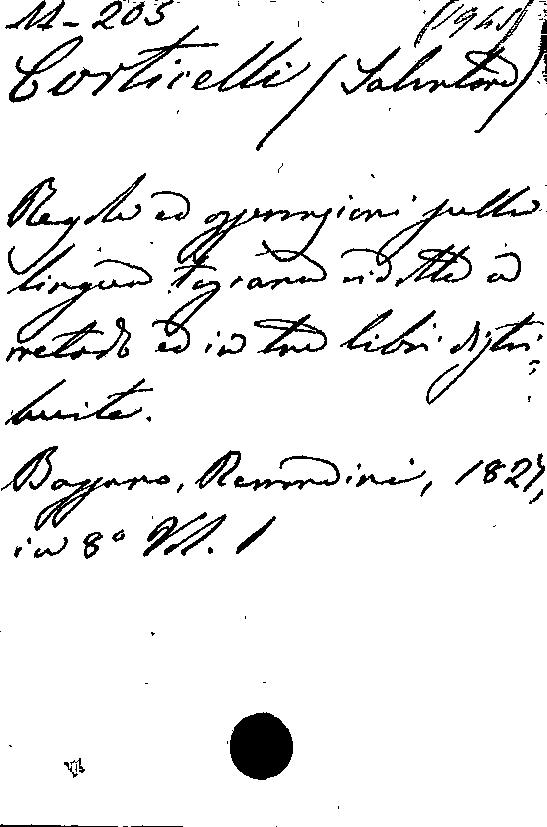 M-203 (1945)
Corticelli / Salvatore)
Regole ed osservazioni sulla
lingua toscana ridotte a
metodo ed in tre libri distri-
buite.
Bassano, Remondini, 1827,
in 8° Vol. 1